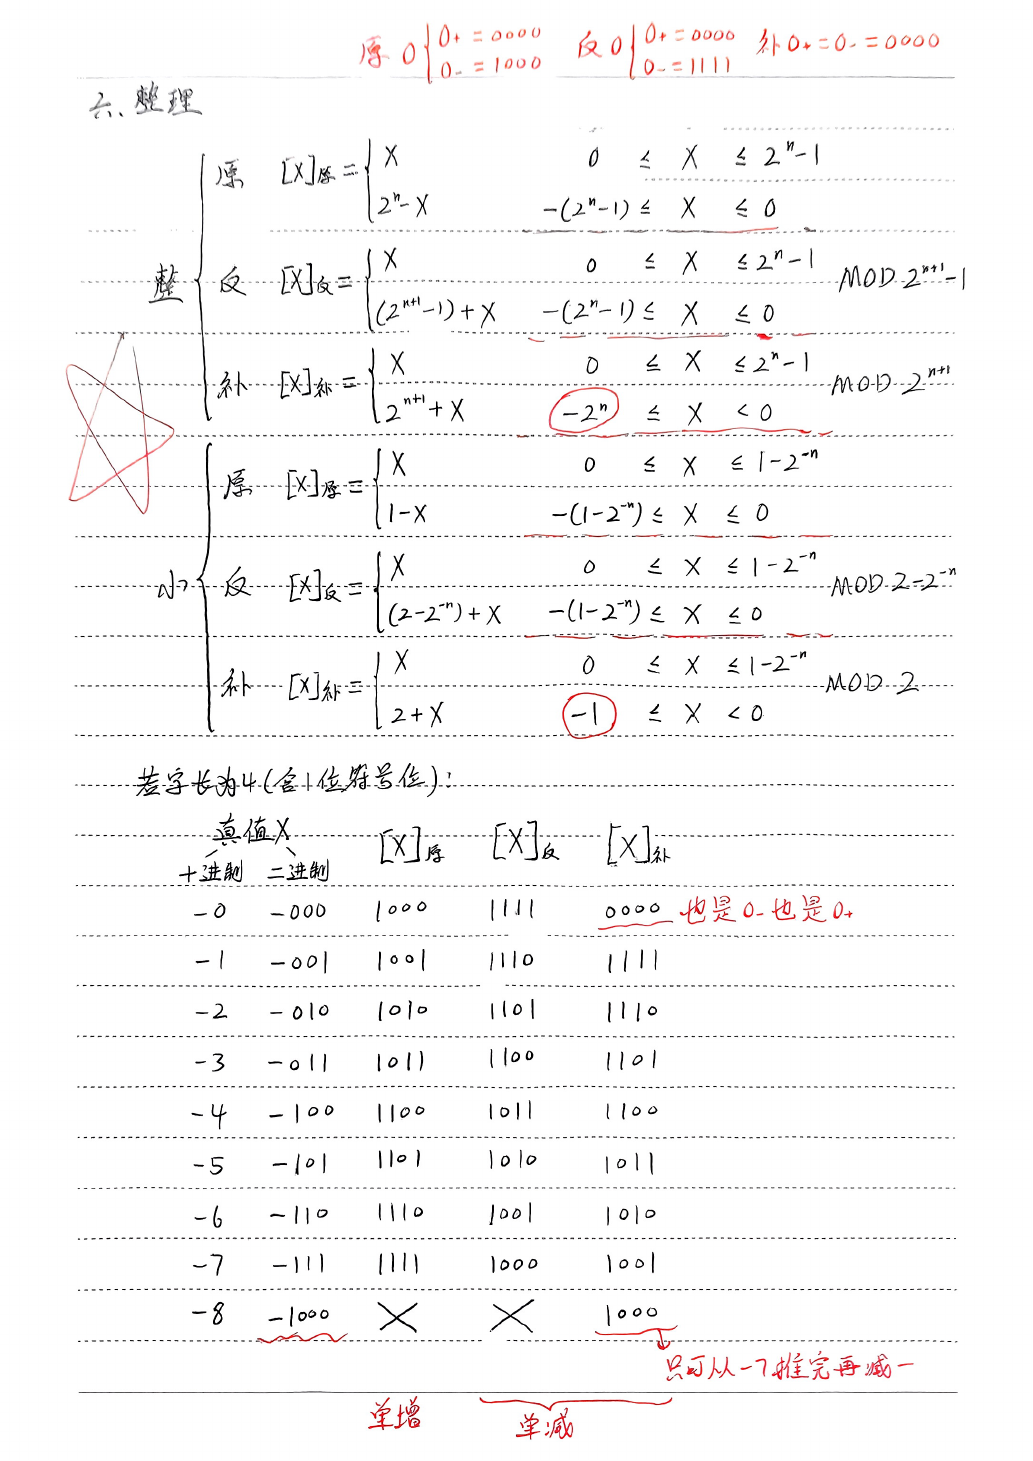 原 0 { 0+ = 0000 反 0 { 0+ = 0000 补 0+ = 0- = 0000
0- = 1000 0- = 1111
六、整理
整 { 原 [X]原 = { X 0 ≤ X ≤ 2ⁿ-1
2ⁿ-X -(2ⁿ-1) ≤ X ≤ 0
反 [X]反 = { X 0 ≤ X ≤ 2ⁿ-1 MOD 2ⁿ⁺¹-1
(2ⁿ⁺¹-1)+X -(2ⁿ-1) ≤ X ≤ 0
补 [X]补 = { X 0 ≤ X ≤ 2ⁿ-1 MOD 2ⁿ⁺¹
2ⁿ⁺¹+X -2ⁿ ≤ X < 0
小 { 原 [X]原 = { X 0 ≤ X ≤ 1-2⁻ⁿ
1-X -(1-2⁻ⁿ) ≤ X ≤ 0
反 [X]反 = { X 0 ≤ X ≤ 1-2⁻ⁿ MOD 2-2⁻ⁿ
(2-2⁻ⁿ)+X -(1-2⁻ⁿ) ≤ X ≤ 0
补 [X]补 = { X 0 ≤ X ≤ 1-2⁻ⁿ MOD 2
2+X -1 ≤ X < 0
若字长为4(含1位符号位):
真值X [X]原 [X]反 [X]补
十进制 二进制
-0 -000 1000 1111 0000 也是0-也是0+
-1 -001 1001 1110 1111
-2 -010 1010 1101 1110
-3 -011 1011 1100 1101
-4 -100 1100 1011 1100
-5 -101 1101 1010 1011
-6 -110 1110 1001 1010
-7 -111 1111 1000 1001
-8 -1000 × × 1000
只可从-7推完再减一
单增 单减